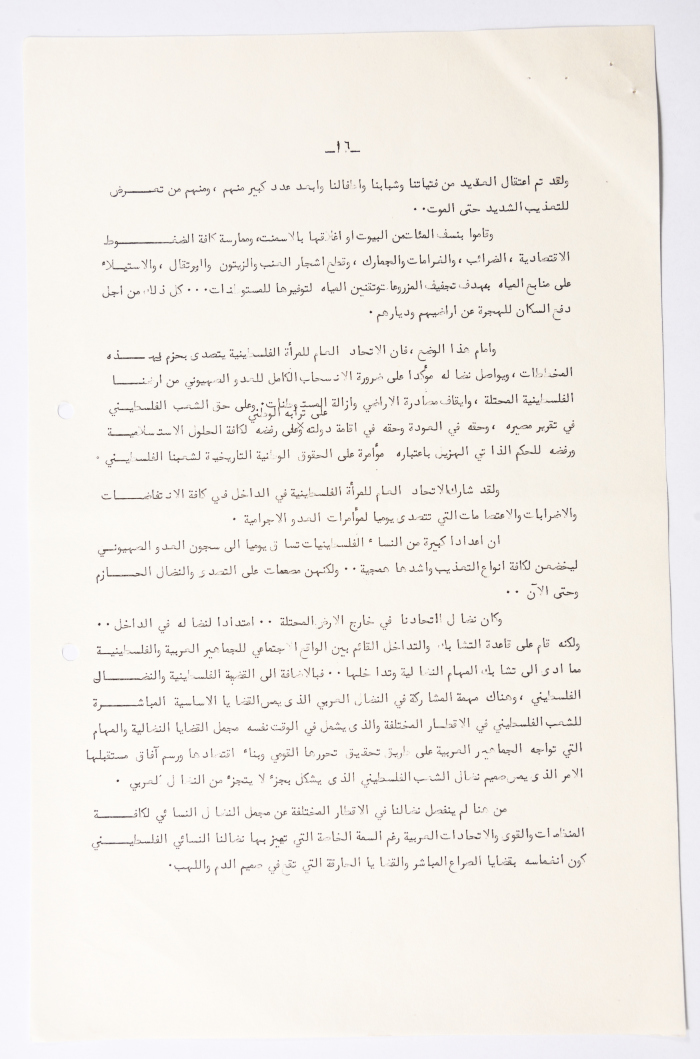 _١٦_
ولقد تم اعتقال العديد من فتياتنا وشبابنا واطفالنا وابعد عدد كبير منهم ، ومنهم من تعرض
للتعذيب الشديد حتى الموت ..
وقاموا بنسف المئات من البيوت او اغلاقها بالاسمنت ، وممارسة كافة الضغوط
الاقتصادية ، الضرائب ، والغرامات والجمارك ، وقطع اشجار العنب والزيتون والبرتقال ، والاستيلاء
على منابع المياه بهدف تجفيف المزروعات وتقنين المياه لتوفيرها للمستوطنات ... كل ذلك من اجل
دفع السكان للهجرة عن اراضيهم وديارهم .
وامام هذا الوضع ، فان الاتحاد العام للمرأة الفلسطينية يتصدى بحزم لهذه
المخططات ، ويواصل نضاله مؤكدا على ضرورة الانسحاب الكامل للعدو الصهيوني من ارضنا
الفلسطينية المحتلة ، وايقاف مصادرة الاراضي وازالة المستوطنات . وعلى حق الشعب الفلسطيني
على ترابه الوطني
في تقرير مصيره ، وحقه في العودة وحقه في اقامة دولته وعلى رفضه لكافة الحلول الاستسلامية
ورفضه للحكم الذاتي الهزيل باعتباره مؤامرة على الحقوق الوطنية التاريخية لشعبنا الفلسطيني .
ولقد شارك الاتحاد العام للمرأة الفلسطينية في الداخل في كافة الانتفاضات
والاضرابات والاعتصامات التي تتصدى يوميا لمؤامرات العدو الاجرامية .
ان اعدادا كبيرة من النساء الفلسطينيات تساق يوميا الى سجون العدو الصهيوني
ليخضعن لكافة انواع التعذيب واشدها همجية .. ولكنهن مصممات على التصدى والنضال الحازم
وحتى الآن ..
وكان نضال اتحادنا في خارج الارض المحتلة .. امتدادا لنضاله في الداخل ..
ولكنه قام على قاعدة التشابك والتداخل القائم بين الواقع الاجتماعي للجماهير العربية والفلسطينية
مما ادى الى تشابك المهام النضالية وتداخلها .. فبالاضافة الى القضية الفلسطينية والنضال
الفلسطيني ، وهناك مهمة المشاركة في النضال العربي الذى يمس القضايا الاساسية المباشرة
للشعب الفلسطيني في الاقطار المختلفة والذى يشمل في الوقت نفسه مجمل القضايا النضالية والمهام
التي تواجه الجماهير العربية على طريق تحقيق تحررها القومي وبناء اقتصادها ورسم آفاق مستقبلها
الامر الذى يمس صميم نضال الشعب الفلسطيني الذى يشكل بجزء لا يتجزء من النضال العربي .
من هنا لم ينفصل نضالنا في الاقطار المختلفة عن مجمل النضال النسائي لكافة
المنظمات والقوى والاتحادات العربية رغم السمة الخاصة التي تميز بها نضالنا النسائي الفلسطيني
كون انغماسه بقضايا الصراع المباشر والقضايا الحارقة التي تقع في صميم الدم واللهب .